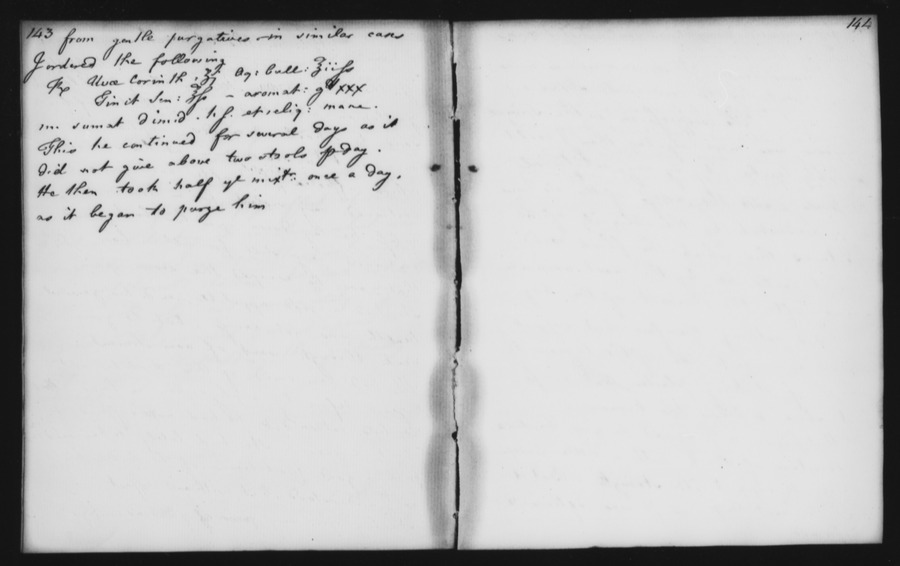 143 from gentle purgatives in similar cases
I ordered the following
℞ Uvæ Corinth: ʒj Aq: bull: ℥iiſs
Tinct Sen: ℥ſs – aromat: gtt xxx
m. sumat dimid. h.ſ. et reliq: mane.
This he continued for several days as it
did not give above two stools ꝑ day.
He then took half yᵉ mixtr: once a day,
as it began to purge him
144